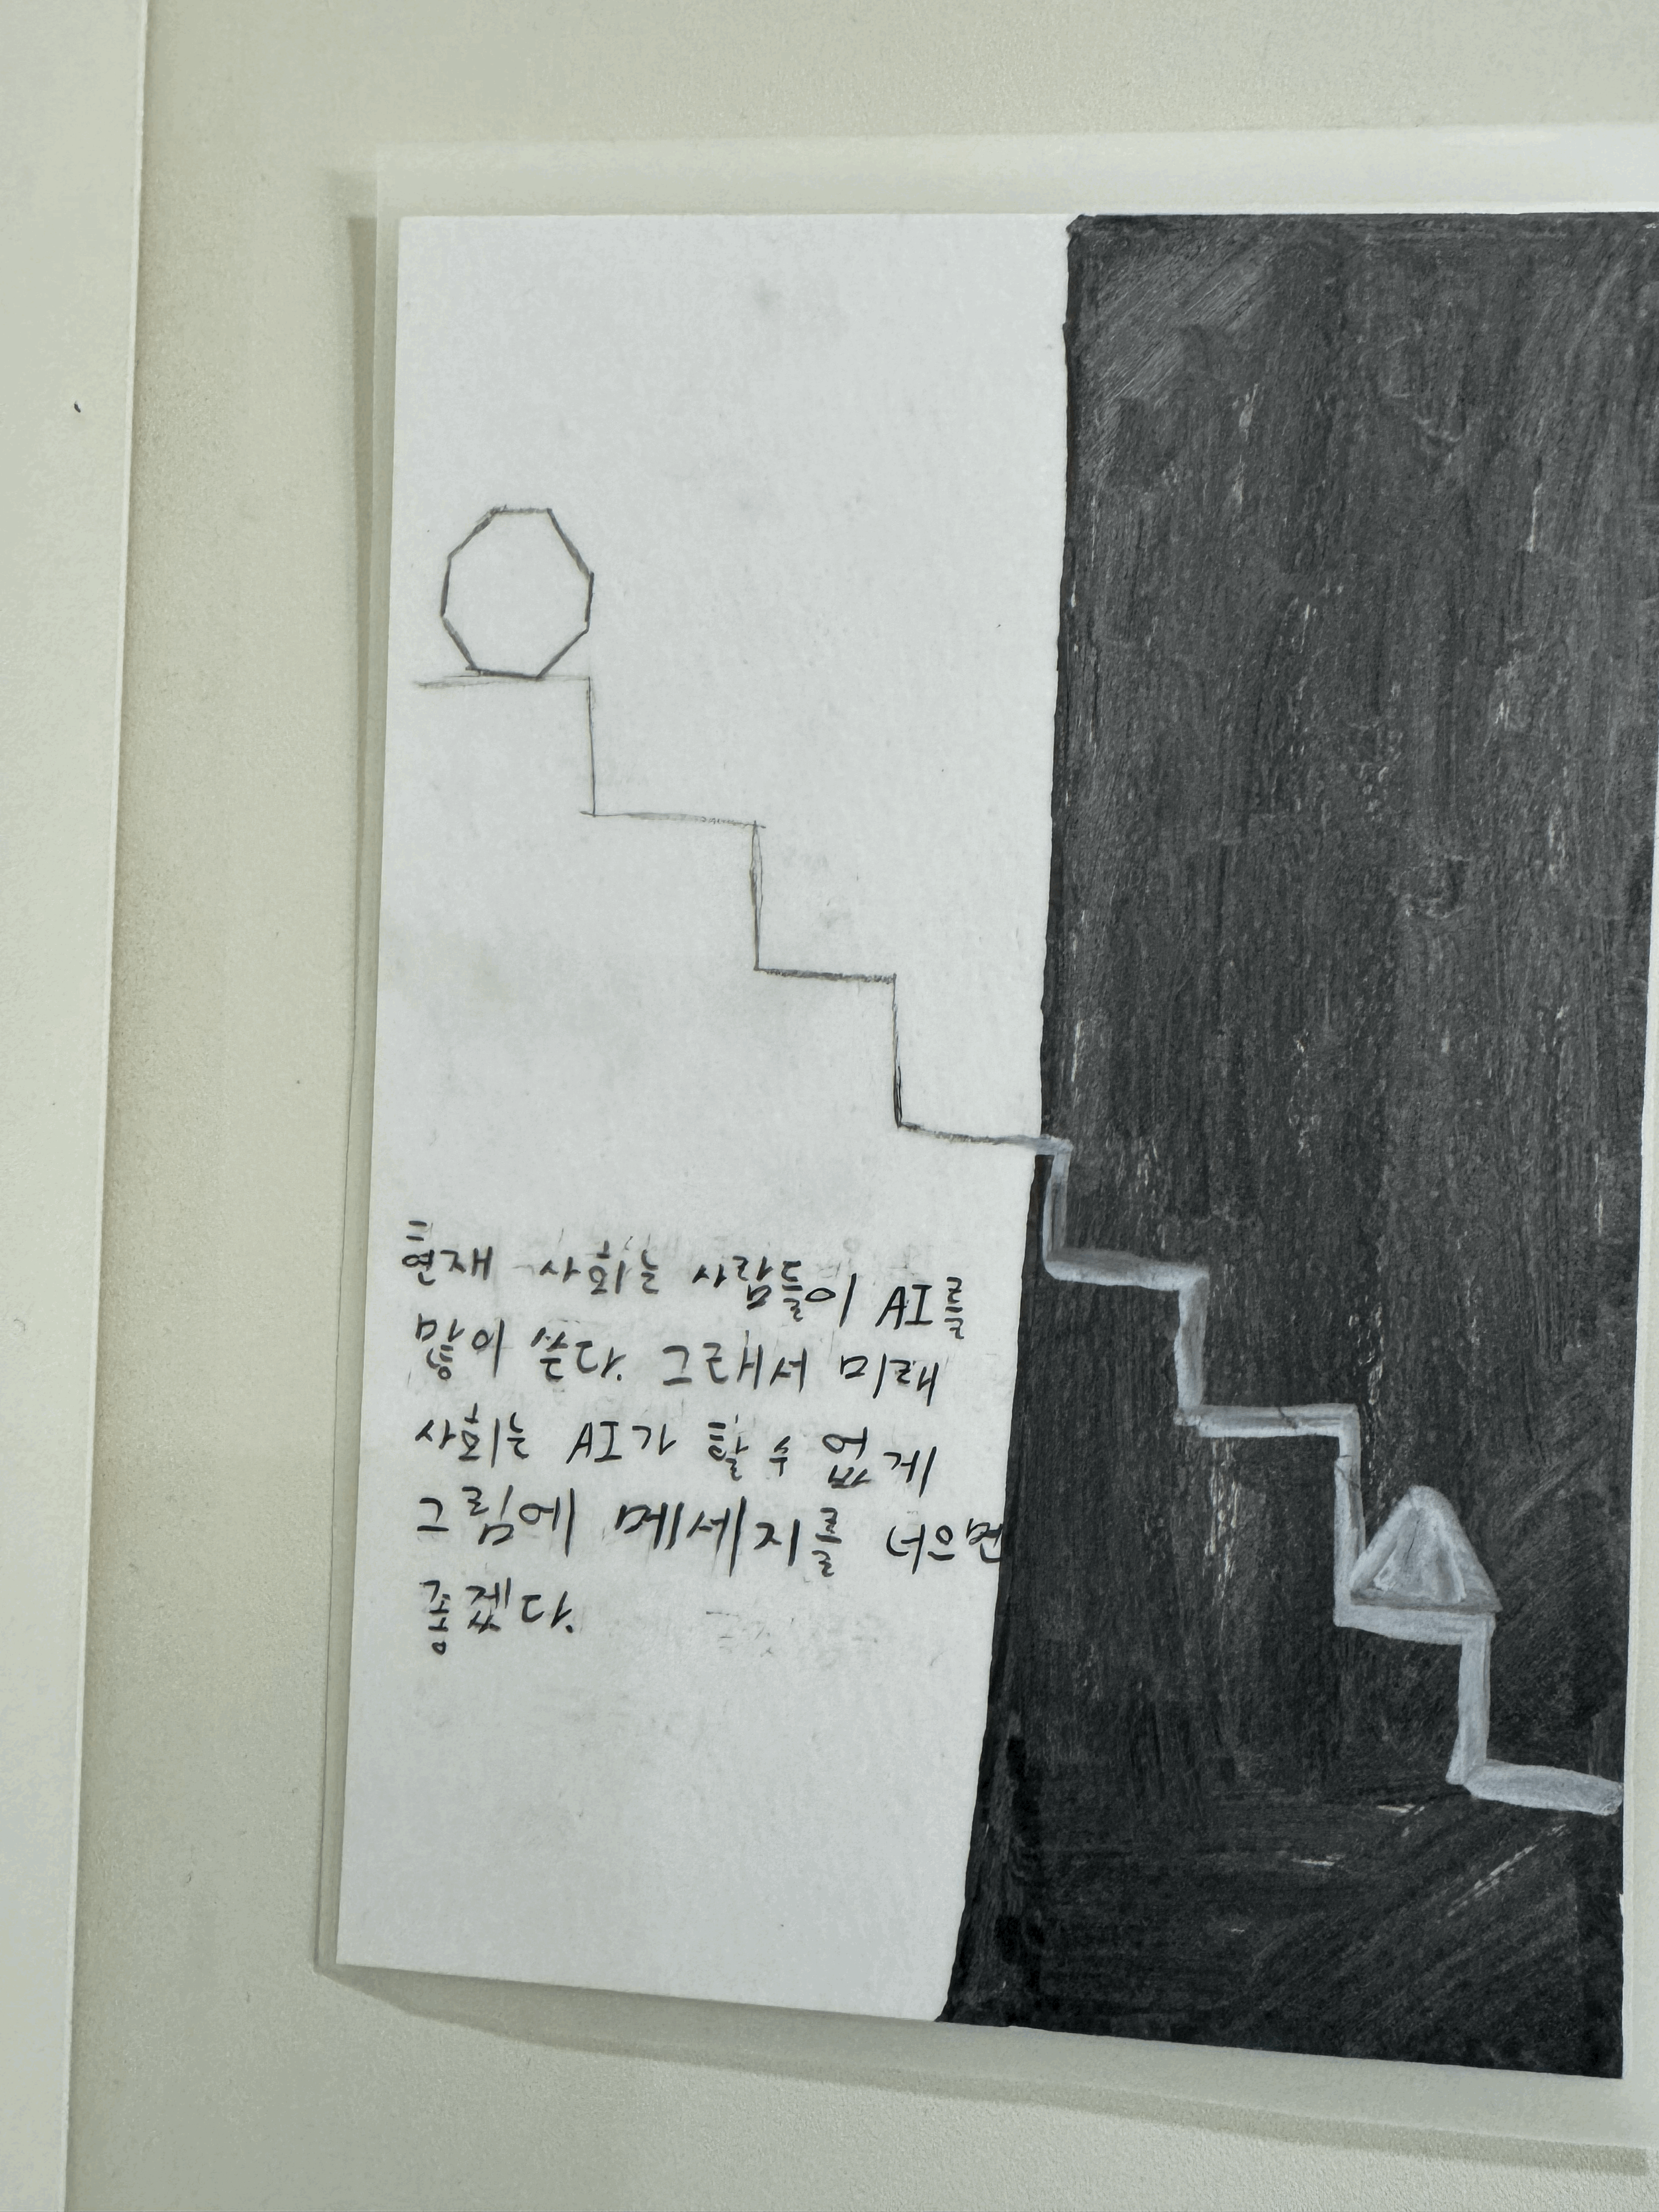 현재 사회는 사람들이 AI를
많이 쓴다. 그래서 미래
사회는 AI가 할 수 없게
그림에 메세지를 너으면
좋겠다.